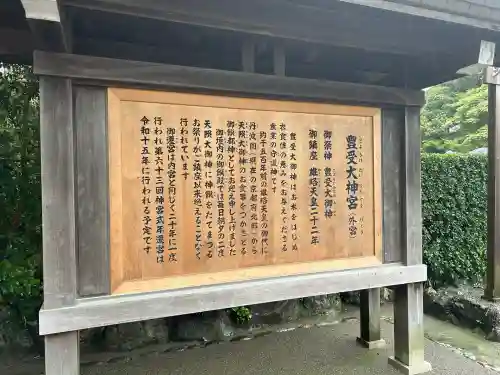 豊受大神宮（外宮）
御祭神　豊受大御神
御鎮座　雄略天皇二十二年
豊受大神宮はお米をはじめ
衣食住の恵みをお与えくださる
産業の守護神です
約千五百年前の雄略天皇の御代に
丹波国（現在の京都府北部）から
天照大御神のお食事をつかさどる
御饌都神としてお迎え申し上げました
御垣内の御饌殿では毎日朝夕の二度
天照大御神に神饌をたてまつる
お祭りがご鎮座以来絶えることなく
行われています
御遷宮は内宮と同じく二十年に一度
行われ第六十三回神宮式年遷宮は
令和十五年に行われる予定です